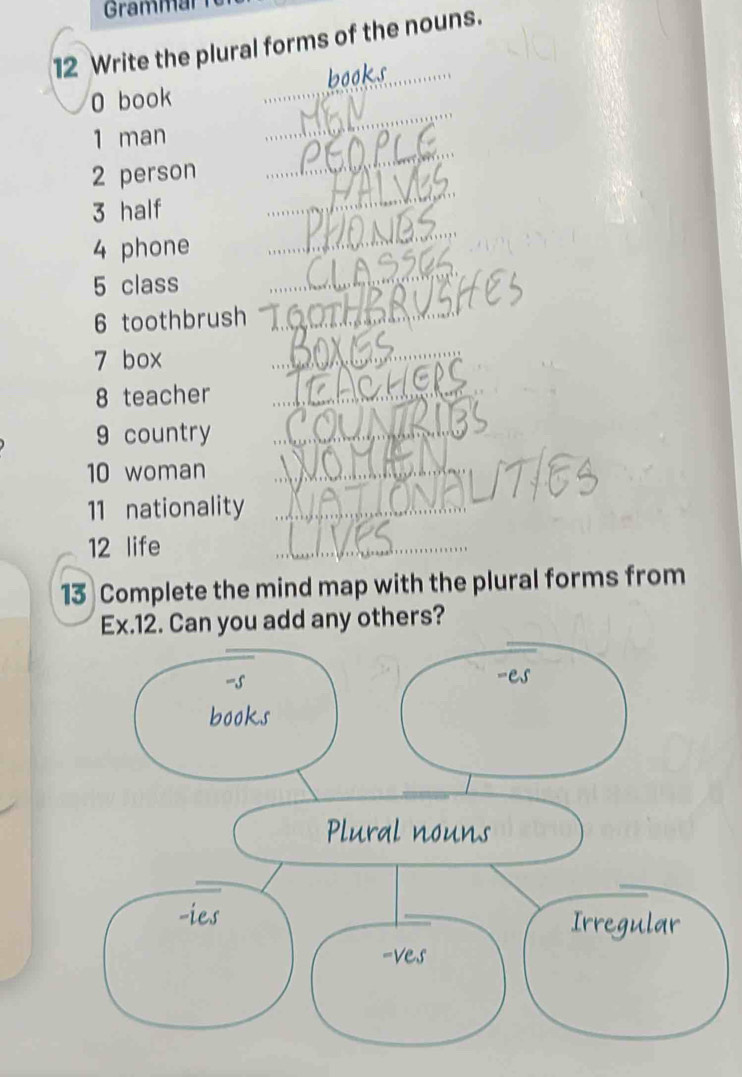 Grammar
12 Write the plural forms of the nouns.
0 book books
1 man MEN
2 person PEOPLE
3 half HALVES
4 phone PHONES
5 class CLASSES
6 toothbrush TOOTHBRUSHES
7 box BOXES
8 teacher TEACHERS
9 country COUNTRIES
10 woman WOMEN
11 nationality NATIONALITIES
12 life LIVES
13 Complete the mind map with the plural forms from
Ex.12. Can you add any others?
-s
books
-es
Plural nouns
-ies
-ves
Irregular